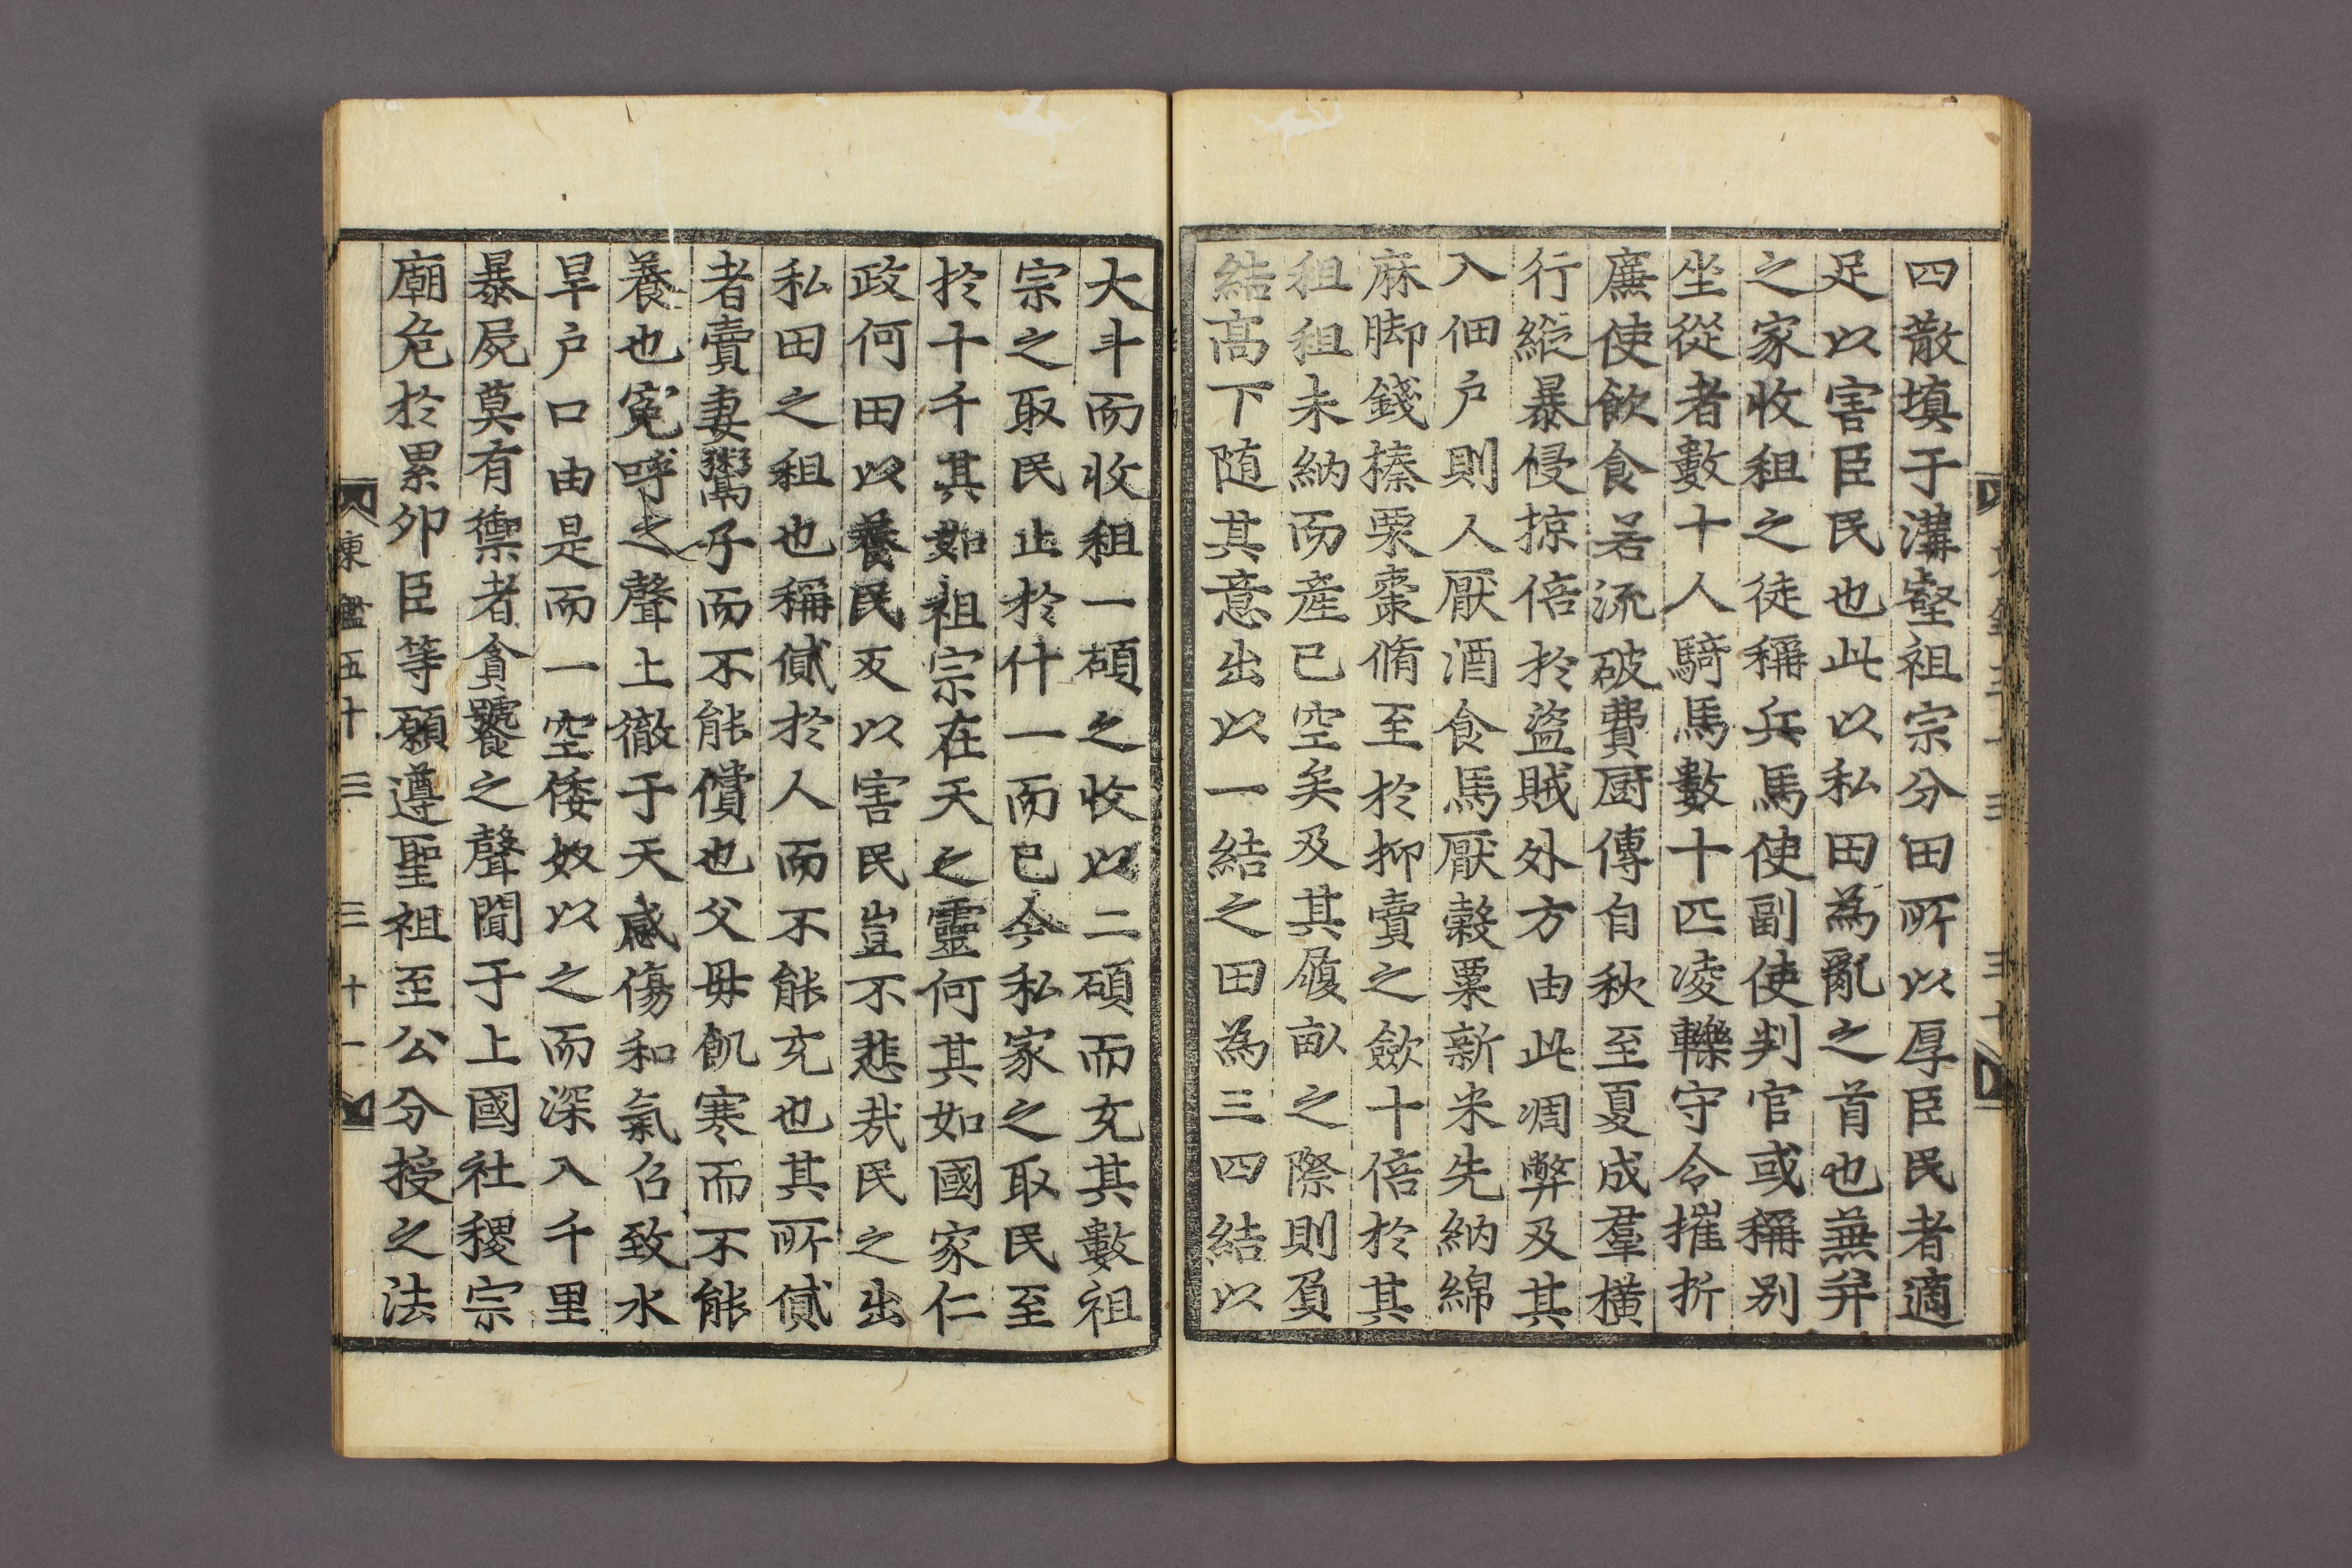 四散填于溝壑祖宗分田所以厚臣民者適
足以害臣民也此以私田為亂之首也兼并
之家收租之徒稱兵馬使副使判官或稱别
坐從者數十人騎馬數十匹凌轢守令摧折
廉使飲食若流破費厨傳自秋至夏成羣横
行縱暴侵掠倍於盜賊外方由此凋弊及其
入佃户則人厭酒食馬厭穀粟新米先納綿
麻脚錢榛栗棗脩至於抑賣之歛十倍於其
租租未納而産已空矣及其履畝之際則負
結高下随其意出以一結之田為三四結以
大斗而收租一碩之收以二碩而充其數祖
宗之取民止於什一而已今私家之取民至
於十千其如祖宗在天之靈何其如國家仁
政何田以養民反以害民豈不悲㢤民之出
私田之租也稱貸於人而不能充也其所貸
者賣妻鬻子而不能償也父母飢寒而不能
養也寃呼之聲上徹于天感傷和氣召致水
旱户口由是而一空倭奴以之而深入千里
暴屍莫有禦者貪饕之聲聞于上國社稷宗
廟危於累卵臣等願遵聖祖至公分授之法
東鑑五十三 三十一